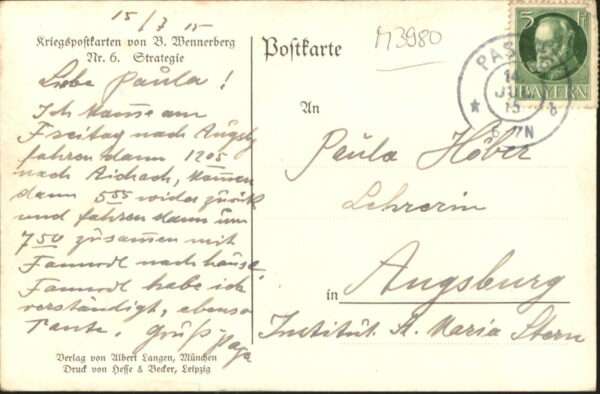 15/7 15
Kriegspostkarten von B. Wennerberg
Nr. 6. Strategie
Liebe Paula!
Ich komme am
Freitag nach Augsbg
fahren dann 12 05
nach Aichach, kommen
dann 5 55 wieder zurück
und fahren dann um
7 50 zusammen mit
nach hause.
habe ich
verständigt, ebenso
Tante. Gruß Papa
Verlag von Albert Langen, München
Druck von Hesse & Becker, Leipzig
Postkarte
M3980
An
Paula Höber
Lehrerin
in Augsburg
Institut St. Maria Stern
5 Pf
BAYERN
PASSAU
14
JUL
15
6-7N
* b